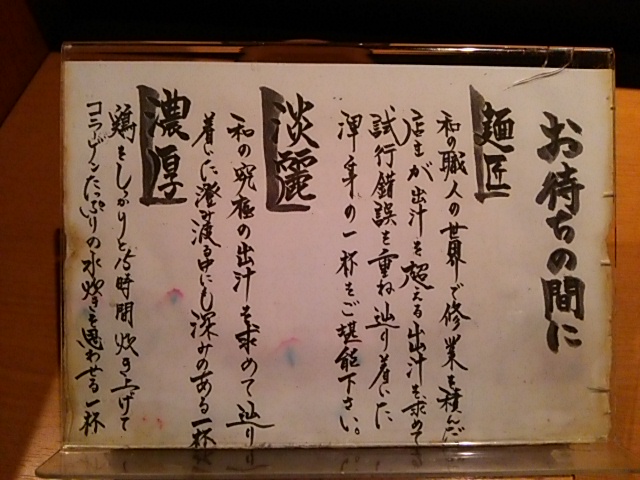 お待ちの間に
麺匠
和の職人の世界で修業を積んだ
店主が出汁を超える出汁を求めて
試行錯誤を重ね辿り着いた
渾身の一杯をご堪能下さい。
淡麗
和の究極の出汁を求めて辿り
着いた澄み渡る中にも深みのある一杯
濃厚
鶏をしっかりと時間炊き上げて
コラーゲンたっぷりの水炊きを思わせる一杯